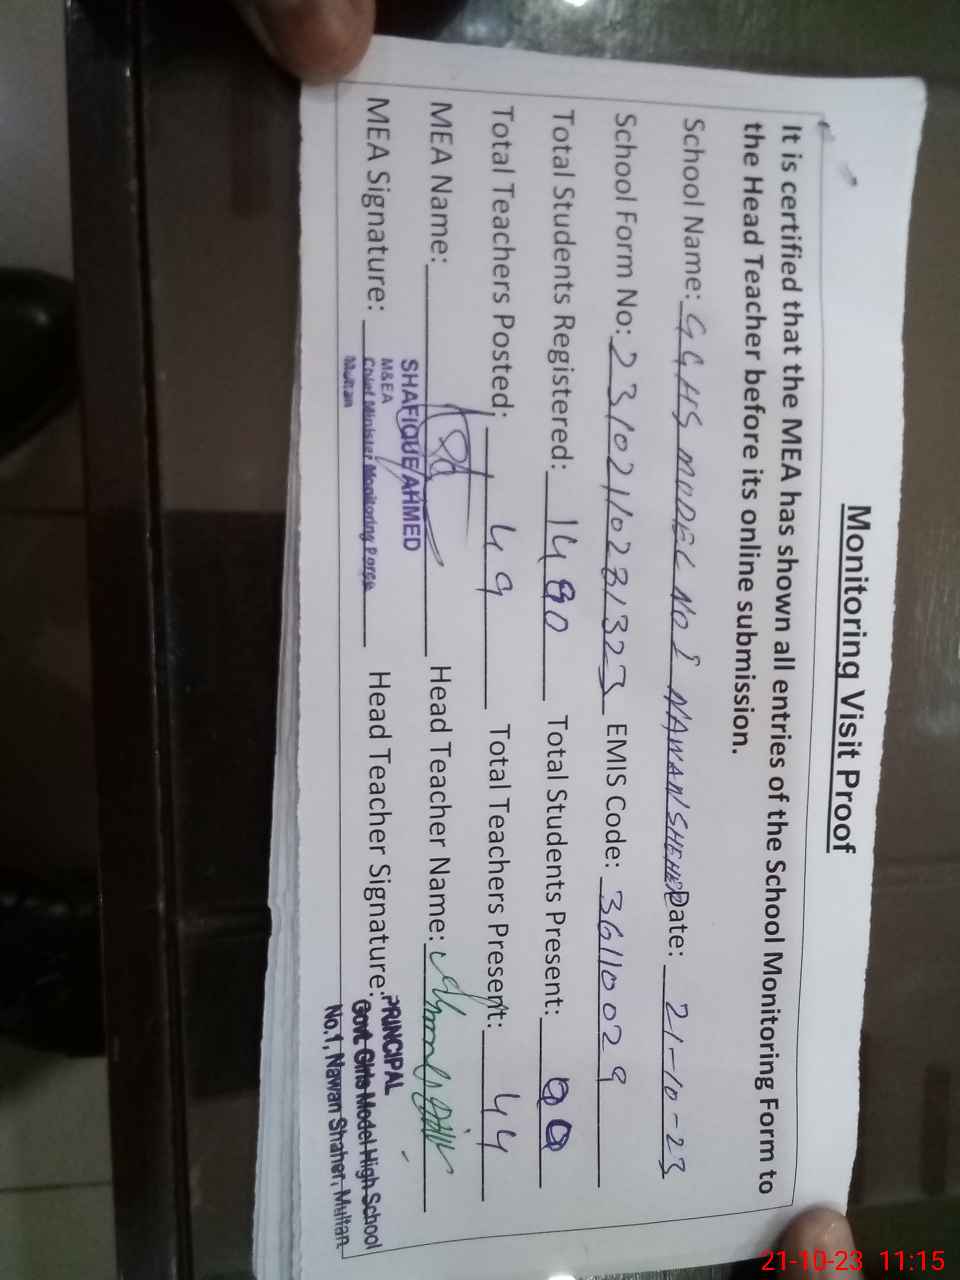 Monitoring Visit Proof
It is certified that the MEA has shown all entries of the School Monitoring Form to
the Head Teacher before its online submission.
School Name: GGHS MODEL NO 1 NAWAN SHEHER Date: 21-10-23
School Form No: 23102110231323 EMIS Code: 36110029
Total Students Registered: 1480 Total Students Present: 00
Total Teachers Posted: 49 Total Teachers Present: 44
MEA Name: Head Teacher Name:
SHAFIQUE AHMED
M&EA
MEA Signature: Chief Minister Monitoring Force Head Teacher Signature:
Multan
PRINCIPAL
Govt. Girls Model High School
No.1, Nawan Shaher, Multan
21-10-23 11:15